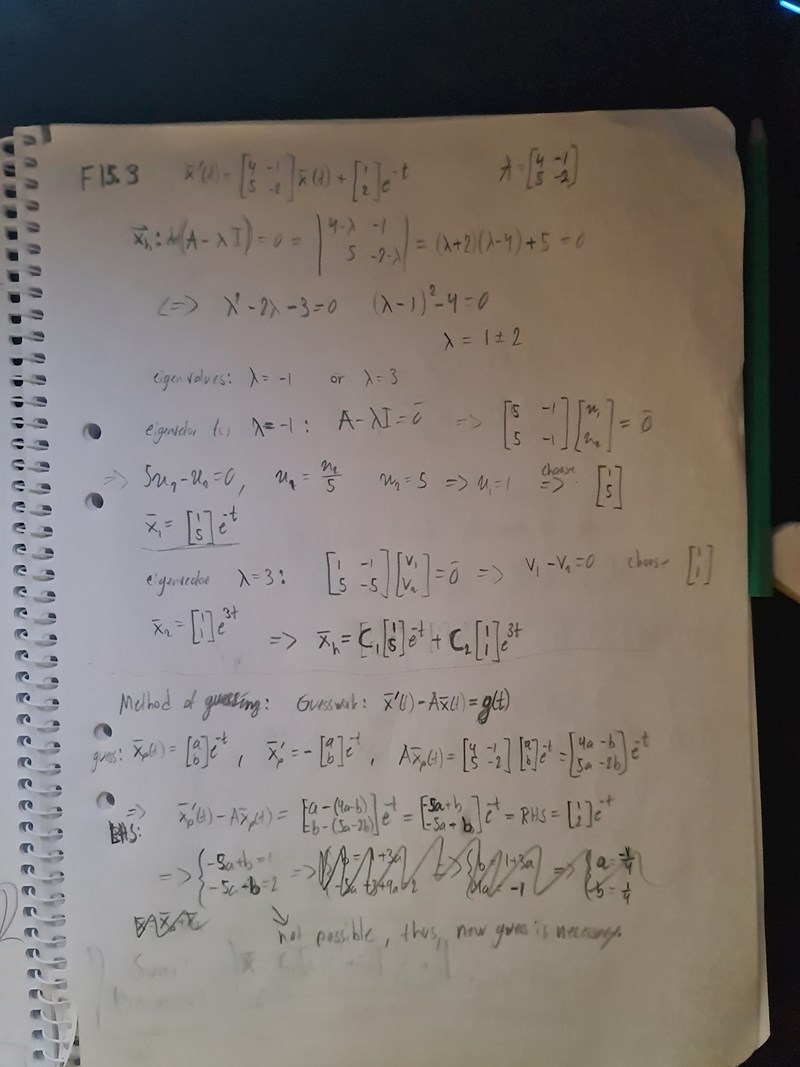 F15.3 x̄'(t) = [4 -1; 5 -2] x̄(t) + [1; 2] e^-t A = [4 -1; 5 -2]
x̄h: (A - λI) = 0 = |4-λ -1; 5 -2-λ| = (λ+2)(λ-4) + 5 = 0
<=> λ² - 2λ - 3 = 0 (λ-1)² - 4 = 0
λ = 1 ± 2
eigenvalues: λ = -1 or λ = 3
eigenvector λ = -1: A - λI = 0̄ => [5 -1; 5 -1] [u₁; u₂] = 0̄
=> 5u₁ - u₂ = 0, u₁ = u₂/5 u₂ = 5 => u₁ = 1 choose => [1; 5]
x̄₁ = [1; 5] e^-t
eigenvector λ = 3: [1 -1; 5 -5] [v₁; v₂] = 0̄ => v₁ - v₂ = 0 choose [1; 1]
x̄₂ = [1; 1] e^3t => x̄h = C₁ [1; 5] e^-t + C₂ [1; 1] e^3t
Method of guessing: Guesswork: x̄'(t) - Ax̄(t) = g(t)
guess: x̄p(t) = [a; b] e^-t, x̄p' = -[a; b] e^-t, Ax̄p(t) = [4 -1; 5 -2] [a; b] e^-t = [4a - b; 5a - 2b] e^-t
=> x̄p'(t) - Ax̄p(t) = [-a - (4a-b); -b - (5a-2b)] e^-t = [-5a+b; -5a+b] e^-t = RHS = [1; 2] e^-t
LHS:
=> {-5a+b = 1; -5a+b = 2 => => {a = -1/4; b = 1/4
not possible, thus, new guess is necessary.